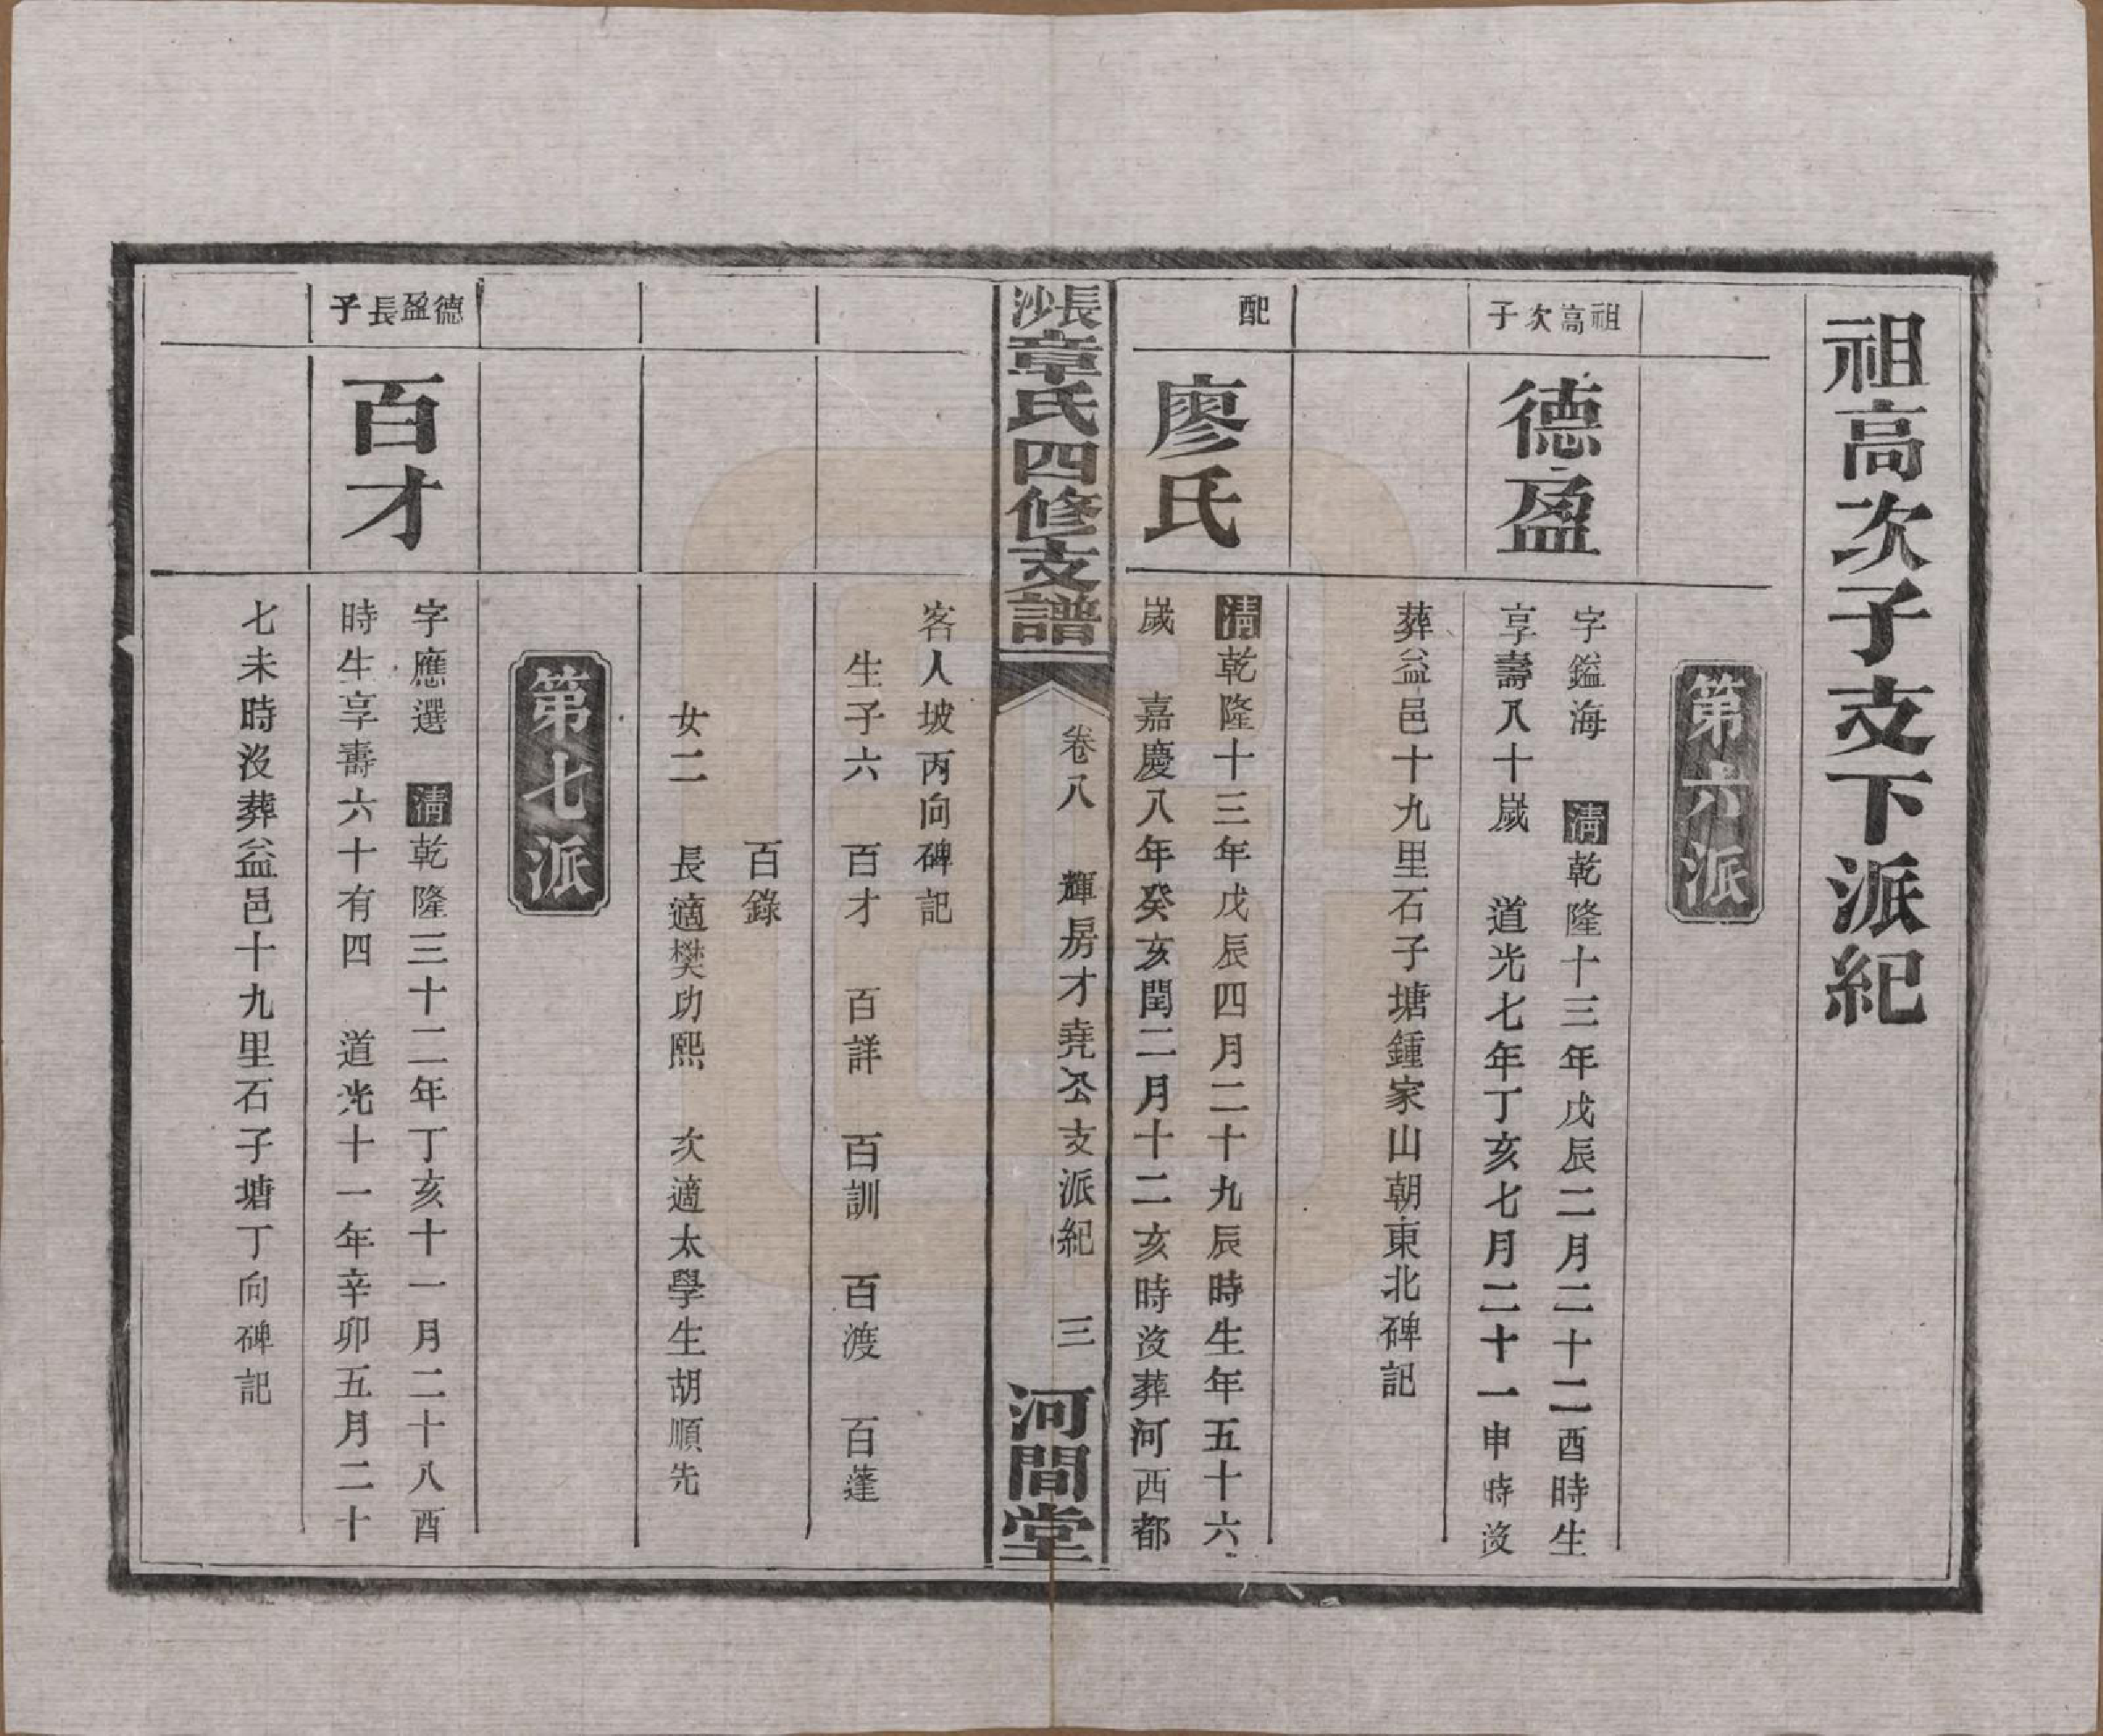 祖高次子支下派紀
第六派
祖高次子
德盈
字鎰海 清乾隆十三年戊辰二月二十二酉時生
享壽八十嵗 道光七年丁亥七月二十一申時沒
葬益邑十九里石子塘鍾家山朝東北碑記
配
廖氏
清乾隆十三年戊辰四月二十九辰時生年五十六
嵗 嘉慶八年癸亥閏二月十二亥時沒葬河西都
長沙章氏四修支譜
卷八 輝房才堯公支派紀 三
河間堂
客人坡丙向碑記
生子六 百才 百詳 百訓 百渡 百蓬
百錄
女二 長適樊功熙 次適太學生胡順先
第七派
德盈長子
百才
字應選 清乾隆三十二年丁亥十一月二十八酉
時生享壽六十有四 道光十一年辛卯五月二十
七未時沒葬益邑十九里石子塘丁向碑記